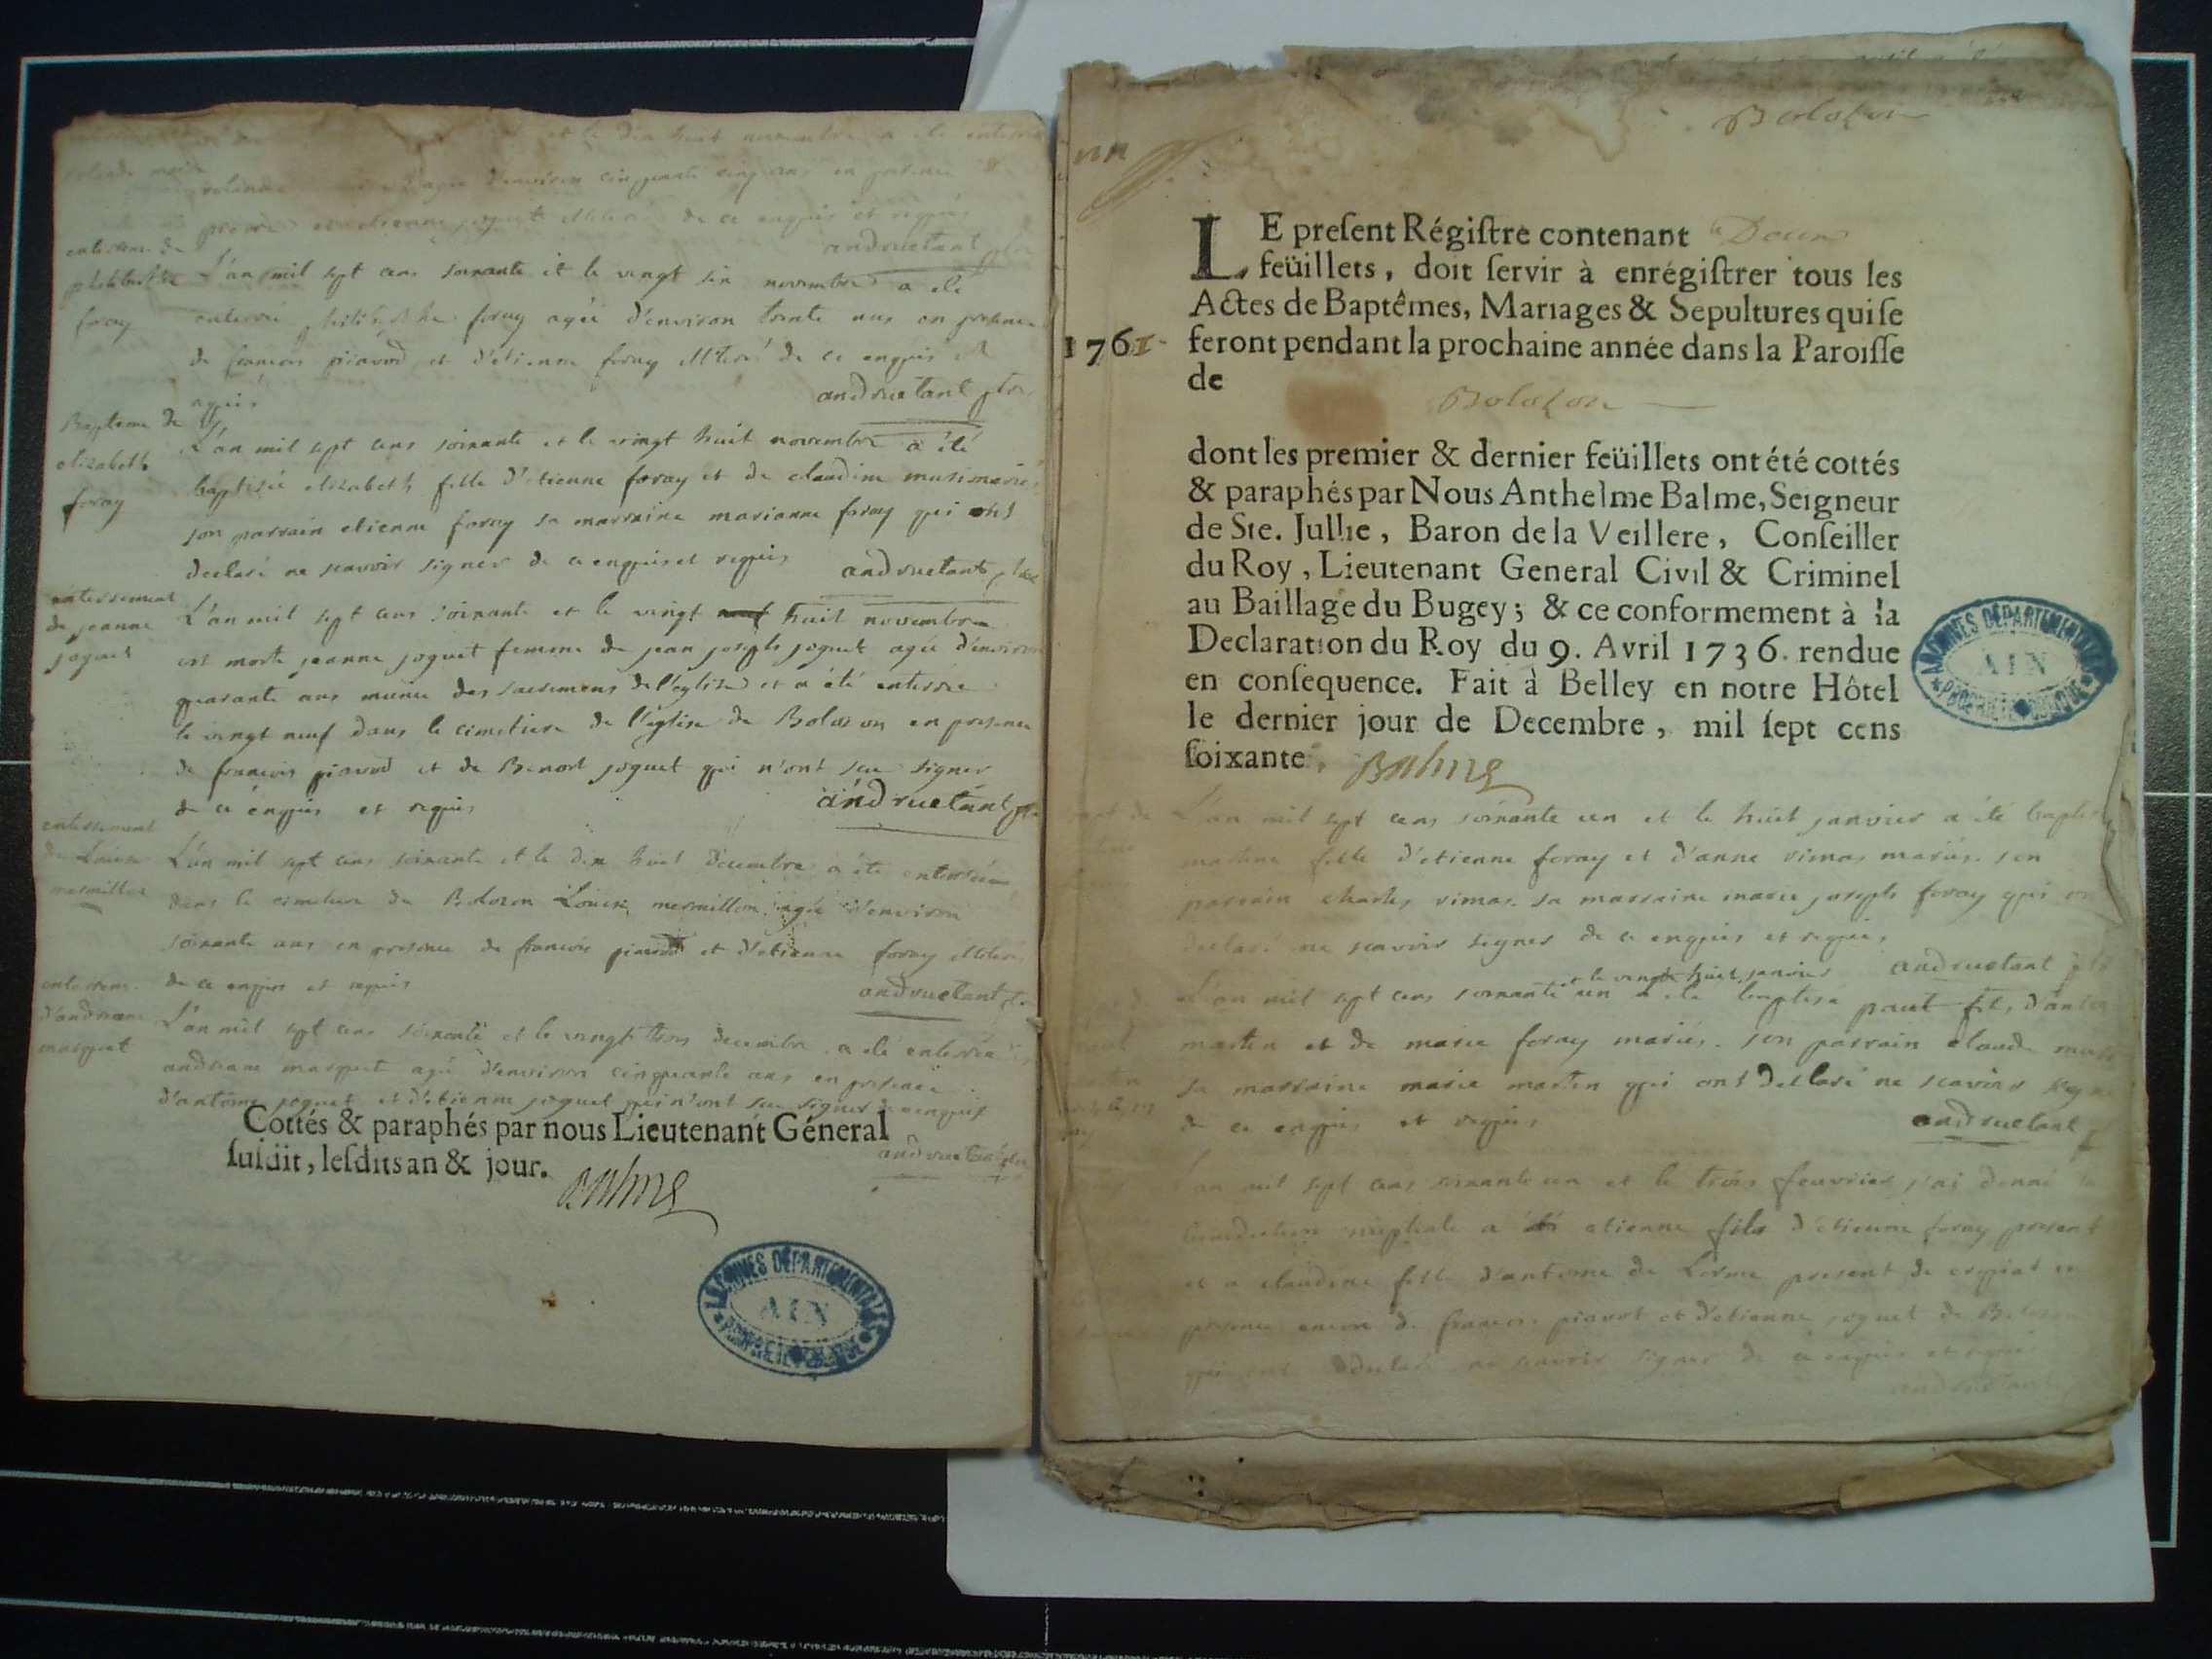 et le dix huit novembre a ete enterré
agée d'environ cinquante cinq ans en presence
et etienne joguet illiteré de ce enquis et requis
andruetant
enterrem. de
philiberthe
foray
L'an mil sept cens soixante et le vingt six novembre a ete
enterrée philiberthe foray agée d'environ trente ans en presence
de francois piavod et d'etienne foray illiteré de ce enquis et
requis
andruetant
Bapteme de
elizabeth
foray
L'an mil sept cens soixante et le vingt huit novembre a été
baptisée elizabeth fille d'etienne foray et de claudine musi mariés
son parrain etienne foray sa marraine marianne foray qui ont
declaré ne scavoir signer de ce enquis et requis
andruetant
enterrement
de jeanne
joguet
L'an mil sept cens soixante et le vingt huit novembre
est morte jeanne joguet femme de jean joseph joguet agée d'environ
quarante ans munie des sacremens de l'eglise et a été enterrée
le vingt neuf dans le cimetiere de l'eglise de Bolozon en presence
de francois piavod et de Benoit joguet qui n'ont scu signer
de ce enquis et requis
andruetant
enterrement
de Louise
mermillon
L'an mil sept cens soixante et le dix huit decembre a été enterrée
dans le cimetiere de Bolozon Louise mermillon agée d'environ
soixante ans en presence de francois piavod et d'etienne foray illiterés
de ce enquis et requis
andruetant
enterrem.
L'an mil sept cens soixante et le vingt trois decembre a été enterrée
agé d'environ cinquante ans en presence
d'antoine joguet et d'etienne joguet qui n'ont scu signer de ce enquis
andruetant
Cottés & paraphés par nous Lieutenant Géneral
susdit, lesdits an & jour.
Balme
ARCHIVES DÉPARTEMENTALES
AIN
Bolozon
1761
LE present Régistre contenant Deux
feüillets, doit servir à enrégistrer tous les
Actes de Baptêmes, Mariages & Sepultures qui se
feront pendant la prochaine année dans la Paroisse
de
Bolozon
dont les premier & dernier feüillets ont été cottés
& paraphés par Nous Anthelme Balme, Seigneur
de Ste. Jullie, Baron de la Veillere, Conseiller
du Roy, Lieutenant General Civil & Criminel
au Baillage du Bugey; & ce conformement à la
Declaration du Roy du 9. Avril 1736. rendue
en consequence. Fait à Belley en notre Hôtel
le dernier jour de Decembre, mil sept cens
soixante.
Balme
ARCHIVES DÉPARTEMENTALES
AIN
L'an mil sept cens soixante un et le huit janvier a été baptisée
martine fille d'etienne foray et d'anne rimas mariés. son
parrain charles rimas. sa marraine marie joseph foray qui ont
declaré ne scavoir signer de ce enquis et requis
andruetant
et le vingt huit janvier
L'an mil sept cens soixante un a ete baptisé fils d'antoine
martin et de marie foray mariés. son parrain claude
sa marraine marie martin qui ont declaré ne scavoir signer
de ce enquis et requis
andruetant
L'an mil sept cens soixante un et le trois fevrier j'ai donné la
benediction nuptiale a etienne fils d'etienne foray present
et a claudine fille d'antoine de Lorme present de
presence encore de francois piavod et d'etienne joguet de Bolozon
qui ont declaré ne scavoir signer de ce enquis et requis
andruetant